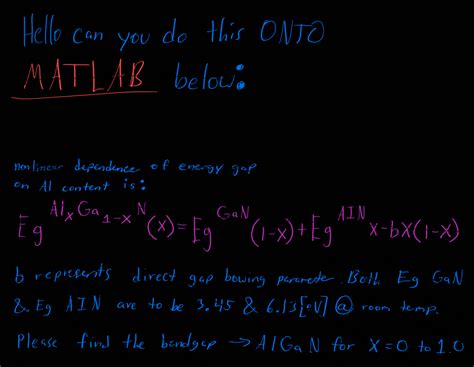 Hello can you do this ONTO
MATLAB below:
nonlinear dependence of energy gap
on Al content is:
Eg^{Al_xGa_{1-x}N}(x)=Eg^{GaN}(1-x)+Eg^{AIN}x-bx(1-x)
b represents direct gap bowing parameter. Both Eg GaN
& Eg AIN are to be 3.45 & 6.13[eV] @ room temp.
Please find the bandgap → AlGaN for X=0 to 1.0